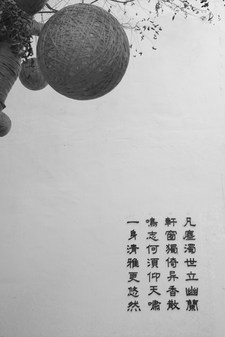 凡塵濁世立幽蘭
軒窗獨倚异香散
鳴志何須仰天嘯
一身清雅更悠然